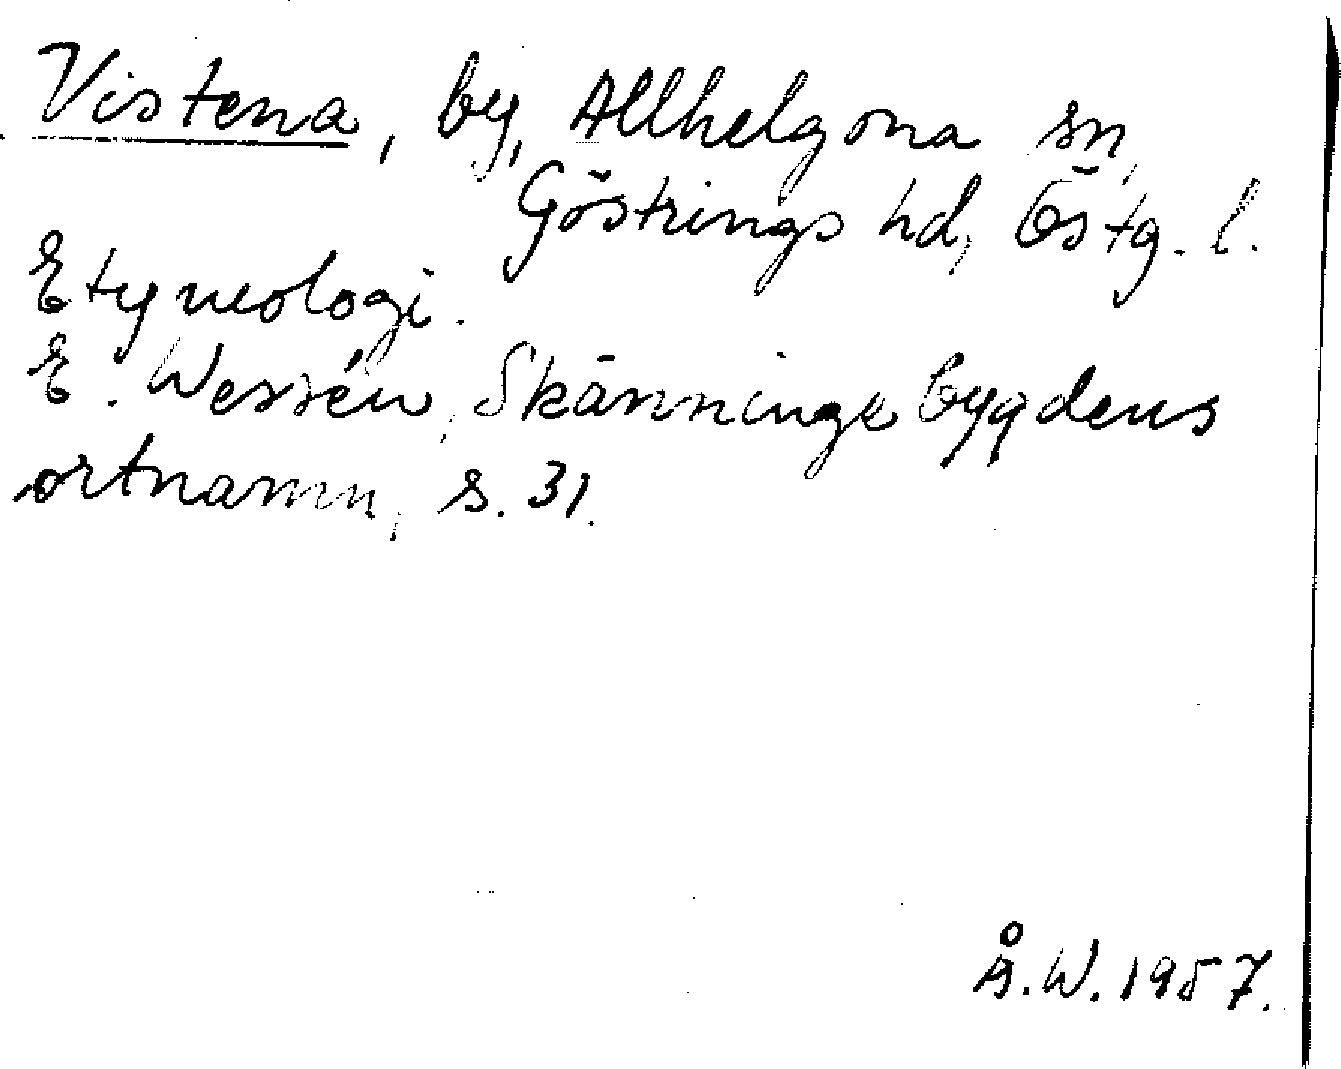 Vistena, by, Allhelgona sn,
Göstrings hd, Östg. l.
Etymologi.
E. Wessén, Skänningebygdens
ortnamn, s. 31.
Å.W. 1957.